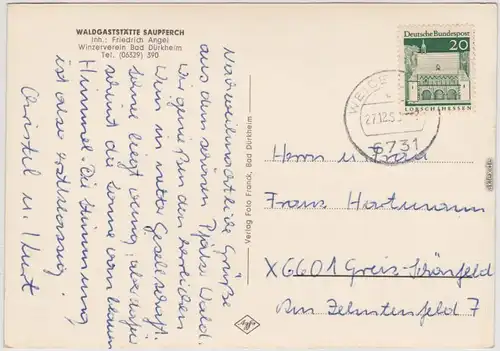 WALDGASTSTÄTTE SAUPFERCH
Inh.: Friedrich Angel
Winzerverein Bad Dürkheim
Tel. (06329) 390
Nachweihnachtliche Grüße
aus dem schönen Pfälz. Wald.
Wir genießen den herrlichen
Wein in netter Gesellschaft.
Schnee liegt wenig, aber dafür
scheint die Sonne vom blauen
Himmel. Die Stimmung
ist also erstklassig.
Christel u. Kurt
Verlag Foto Franck, Bad Dürkheim
Deutsche Bundespost
20
LORSCH/HESSEN
6731
Herrn u. Frau
Franz Hartmann
X6601 Greiz-Schönfeld
Am Zehntenfeld 7